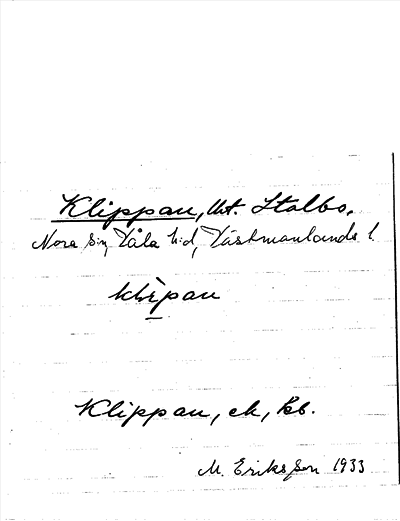 Klippan, lht. Stalbo,
Nora sn, Våla hd, Västmanlands l.
klɩ̀pan
Klippan, ek, kb.
M. Eriksson 1933